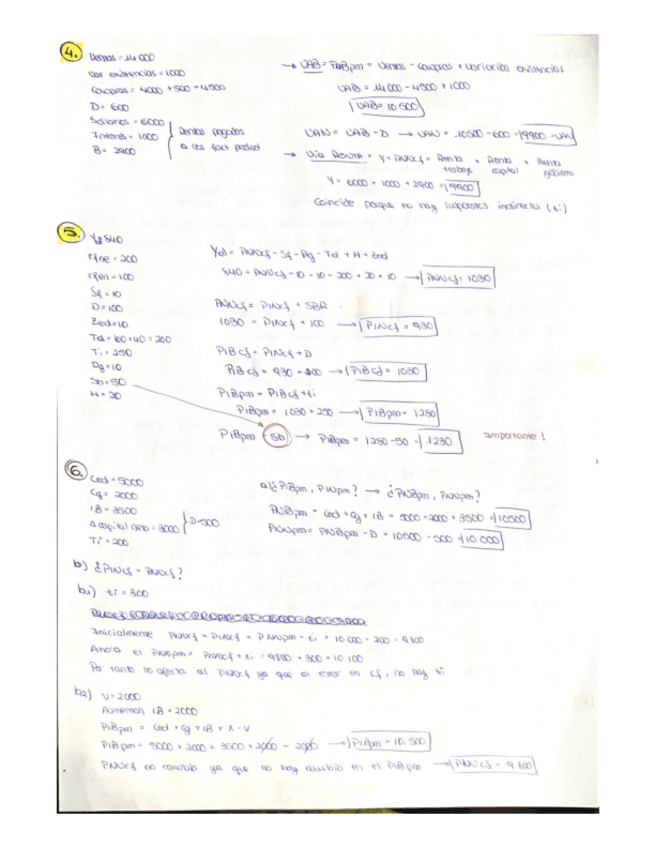 4.
Ventas = 14000
Var existencias = 1000
Compras = 4000 + 500 = 4500
D = 600
Salarios = 6000
Interes = 1000
B = 2900
Rentas pagadas
a los fact product
→ VAB = PIBpm = Ventas - Compras + variacion existencias
VAB = 14000 - 4500 + 1000
VAB = 10500
VAN = VAB - D → VAN = 10500 - 600 = 9900 = VAN
→ Via Renta = Y = PNNcf = Renta trabajo + Renta capital +
Y = 6000 + 1000 + 2900 = 9900
Coincide porque no hay impuestos indirectos (ti)
5.
Yd 840
rfne = 200
rfen = 100
Sf = 10
D = 100
Zed = 10
Td = 160 + 40 = 200
Ti = 250
Ag = 10
Sb = 50
H = 20
Yd = PNNcf - Sf - Ag - Td + H + Zed
840 = PNNcf - 10 - 10 - 200 + 20 + 10 → PNNcf = 1030
PNNcf = PINcf + SBR
1030 = PINcf + 100 → PINcf = 930
PIBcf = PINcf + D
PIBcf = 930 + 100 → PIBcf = 1030
PIBpm = PIBcf + ti
PIBpm = 1030 + 250 → PIBpm = 1280
PIBpm - Sb → PIBpm = 1280 - 50 = 1230
importante!
6.
Ced = 5000
Cg = 2000
IB = 3500
Δ capital neto = 3000
D = 500
Ti = 200
a) ¿PIBpm, PINpm? → ¿PNBpm, PNNpm?
PNBpm = Ced + Cg + IB = 5000 + 2000 + 3500 = 10500
PNNpm = PNBpm - D = 10500 - 500 = 10 000
b) ¿PINcf = PNNcf?
b1) ti = 300
Inicialmente PNNcf = PINcf = PNNpm - ti = 10 000 - 200 = 9800
Ahora el PNNpm = PNNcf + ti = 9800 + 300 = 10 100
Por tanto no afecta al PNNcf ya que al estar en cf, no hay ti
b2) V = 2000
Aumentan IB = 2000
PIBpm = Ced + Cg + IB + X - V
PIBpm = 5000 + 2000 + 3500 + 2000 - 2000 → PIBpm = 10.500
PNNcf no cambia ya que no hay cambio en el PIBpm → PNNcf = 9800